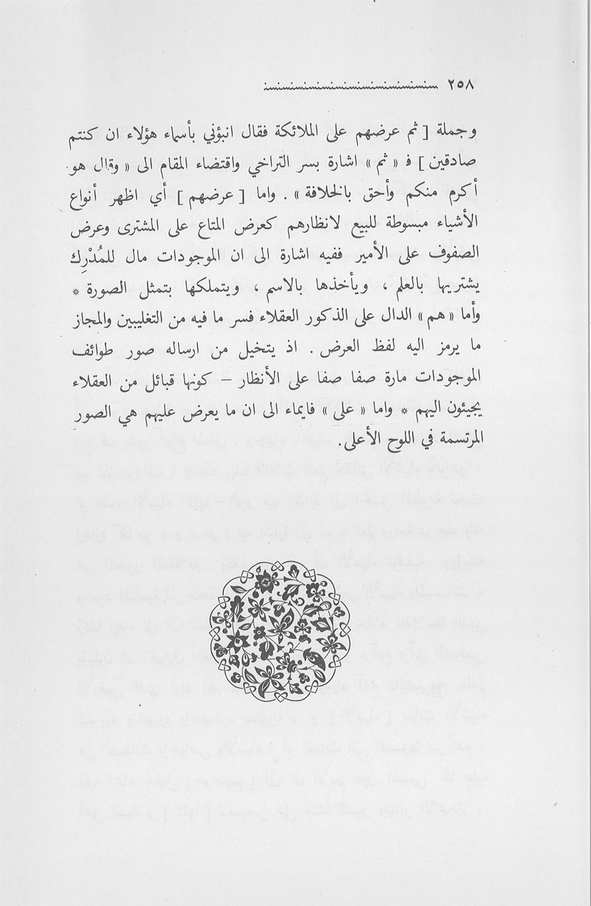 ٢٥٨
وجملة [ ثم عرضهم على الملائكة فقال انبؤني بأسماء هؤلاء ان كنتم
صادقين ] ف « ثم » اشارة بسر التراخي واقتضاء المقام الى « وقال هو
أكرم منكم وأحق بالخلافة » . واما [ عرضهم ] أي اظهر أنواع
الأشياء مبسوطة للبيع لانظارهم كعرض المتاع على المشترى وعرض
الصفوف على الأمير ففيه اشارة الى ان الموجودات مال للمُدْرِك
يشتريها بالعلم ، ويأخذها بالاسم ، ويتملكها بتمثل الصورة *
وأما « هم » الدال على الذكور العقلاء فسر ما فيه من التغليبين والمجاز
ما يرمز اليه لفظ العرض . اذ يتخيل من ارساله صور طوائف
الموجودات مارة صفا صفا على الأنظار – كونها قبائل من العقلاء
يجيئون اليهم * واما « على » فايماء الى ان ما يعرض عليهم هي الصور
المرتسمة في اللوح الأعلى .